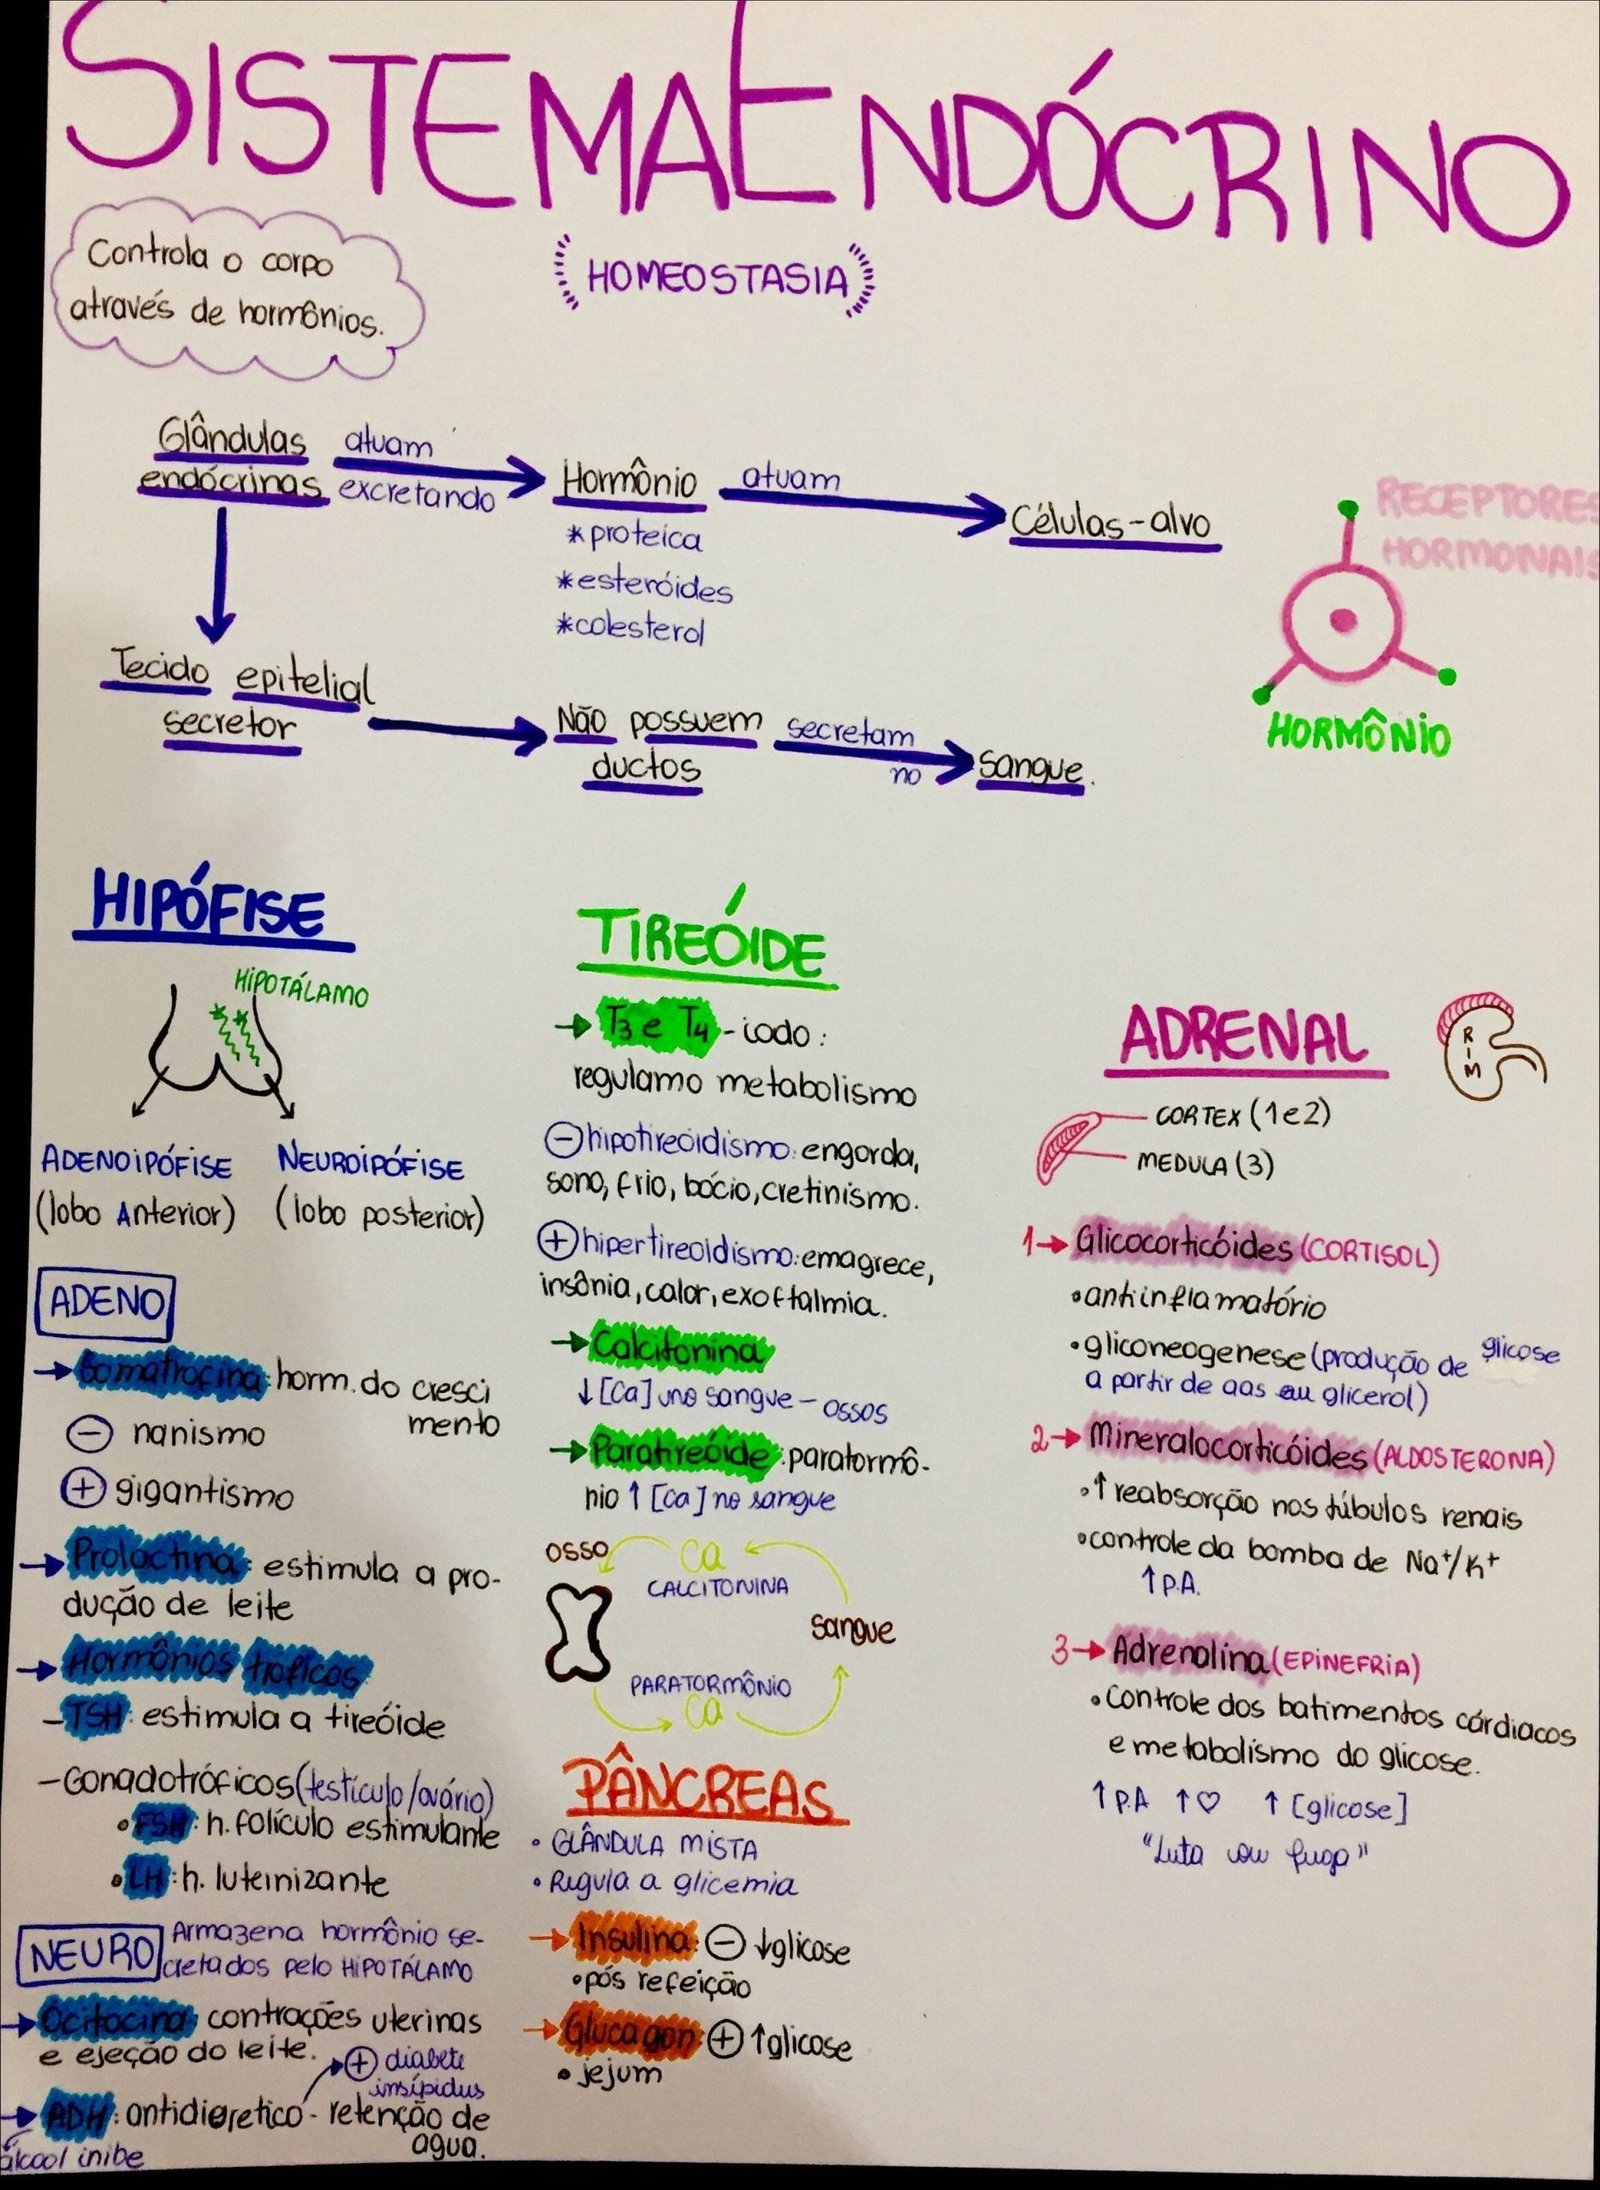 SISTEMA ENDÓCRINO
Controla o corpo
através de hormônios.
HOMEOSTASIA
Glândulas
endócrinas
atuam
excretando
Hormônio
*proteica
*esteróides
*colesterol
atuam
Células-alvo
RECEPTORES
HORMONAIS
HORMÔNIO
Tecido epitelial
secretor
Não possuem
ductos
secretam
no
sangue.
HIPÓFISE
HIPOTÁLAMO
ADENOIPÓFISE
(lobo Anterior)
NEUROIPÓFISE
(lobo posterior)
ADENO
→ Somatrofina: horm. do cresci
mento
⊖ nanismo
⊕ gigantismo
→ Prolactina: estimula a pro-
dução de leite
→ Hormônios tróficos
- TSH: estimula a tireóide
- Gonadotróficos (testículo/ovário)
• FSH: h. folículo estimulante
• LH: h. luteinizante
NEURO
Armazena hormônio se-
cretados pelo HIPOTÁLAMO
→ Ocitocina: contrações uterinas
e ejeção do leite.
⊕ diabete
insípidus
→ ADH: antidiuretico - retenção de
agua.
álcool inibe
TIREÓIDE
→ T3 e T4 - iodo:
regulamo metabolismo
⊖ hipotireoidismo: engorda,
sono, frio, bócio, cretinismo.
⊕ hipertireoidismo: emagrece,
insônia, calor, exoftalmia.
→ Calcitonina
↓ [Ca] no sangue - ossos
→ Paratireóide: paratormô-
nio ↑ [Ca] no sangue
OSSO
Ca
CALCITONINA
sangue
PARATORMÔNIO
Ca
PÂNCREAS
• GLÂNDULA MISTA
• Regula a glicemia
→ Insulina: ⊖ ↓glicose
• pós refeição
→ Glucagon: ⊕ ↑glicose
• jejum
ADRENAL
RIM
CORTEX (1 e 2)
MEDULA (3)
1→ Glicocorticóides (CORTISOL)
• antiinflamatório
• gliconeogenese (produção de glicose
a partir de aas ou glicerol)
2→ Mineralocorticóides (ALDOSTERONA)
• ↑ reabsorção nos túbulos renais
• controle da bomba de Na+/K+
↑ P.A.
3→ Adrenalina (EPINEFRIA)
• controle dos batimentos cárdiacos
e metabolismo do glicose.
↑ P.A ↑♡ ↑ [glicose]
"Luta ou fuga"